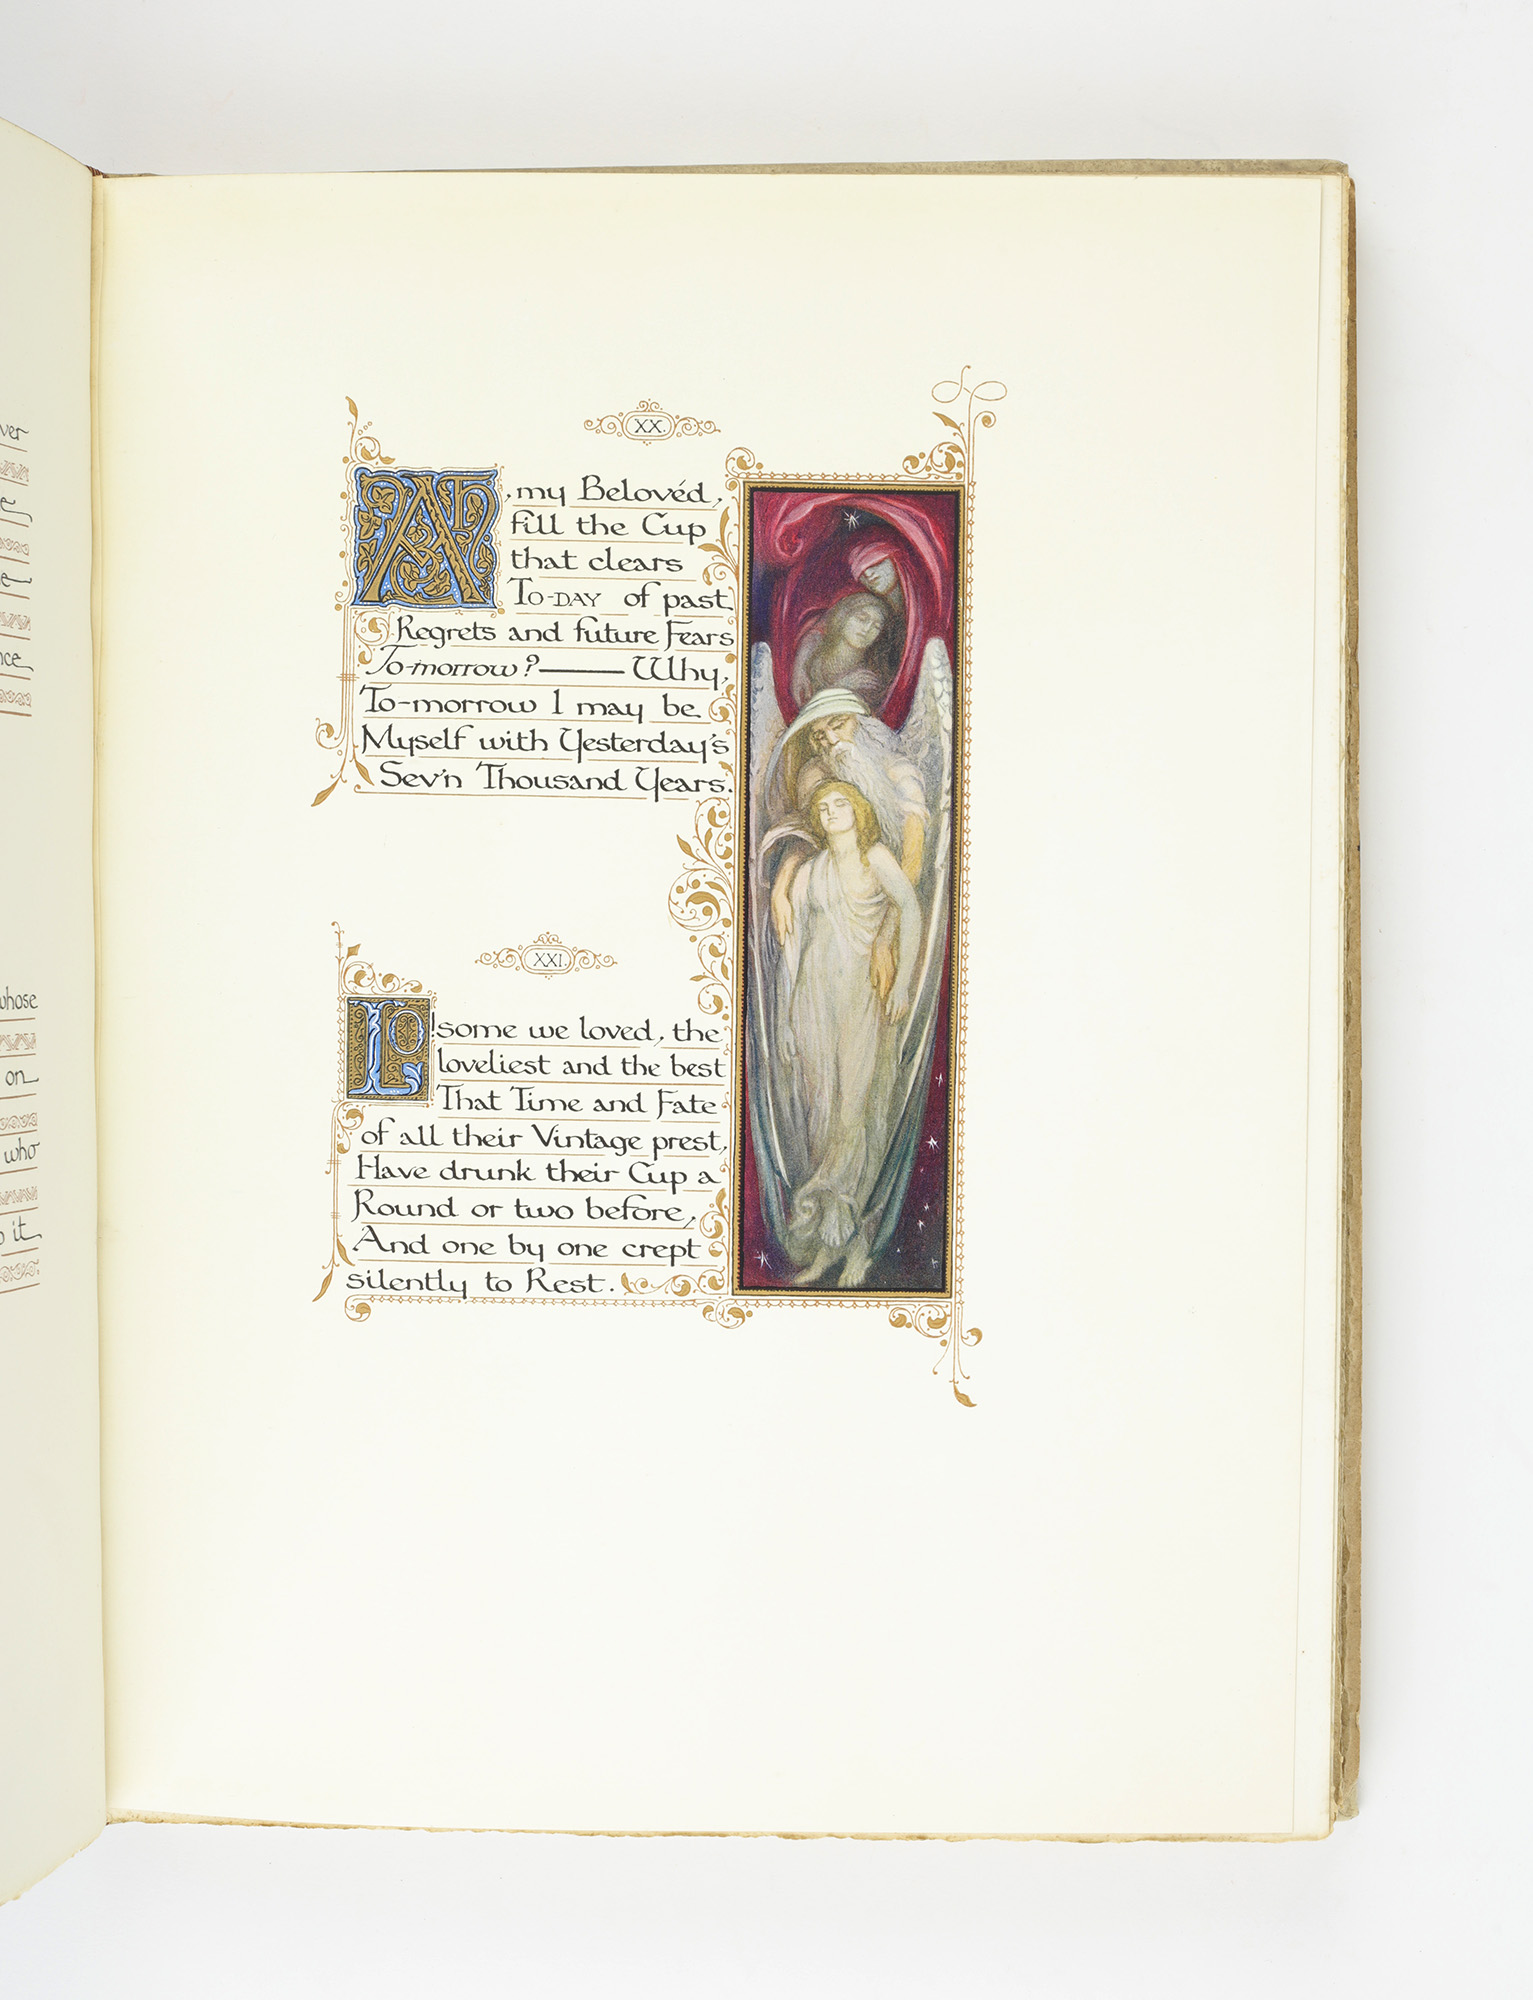 ver
nce
whose
on
who
it
XX.
AH, my Belovéd,
fill the Cup
that clears
To-DAY of past
Regrets and future Fears
To-morrow?—Why,
To-morrow I may be
Myself with Yesterday's
Sev'n Thousand Years.
XXI.
LO! some we loved, the
loveliest and the best
That Time and Fate
of all their Vintage prest,
Have drunk their Cup a
Round or two before,
And one by one crept
silently to Rest.